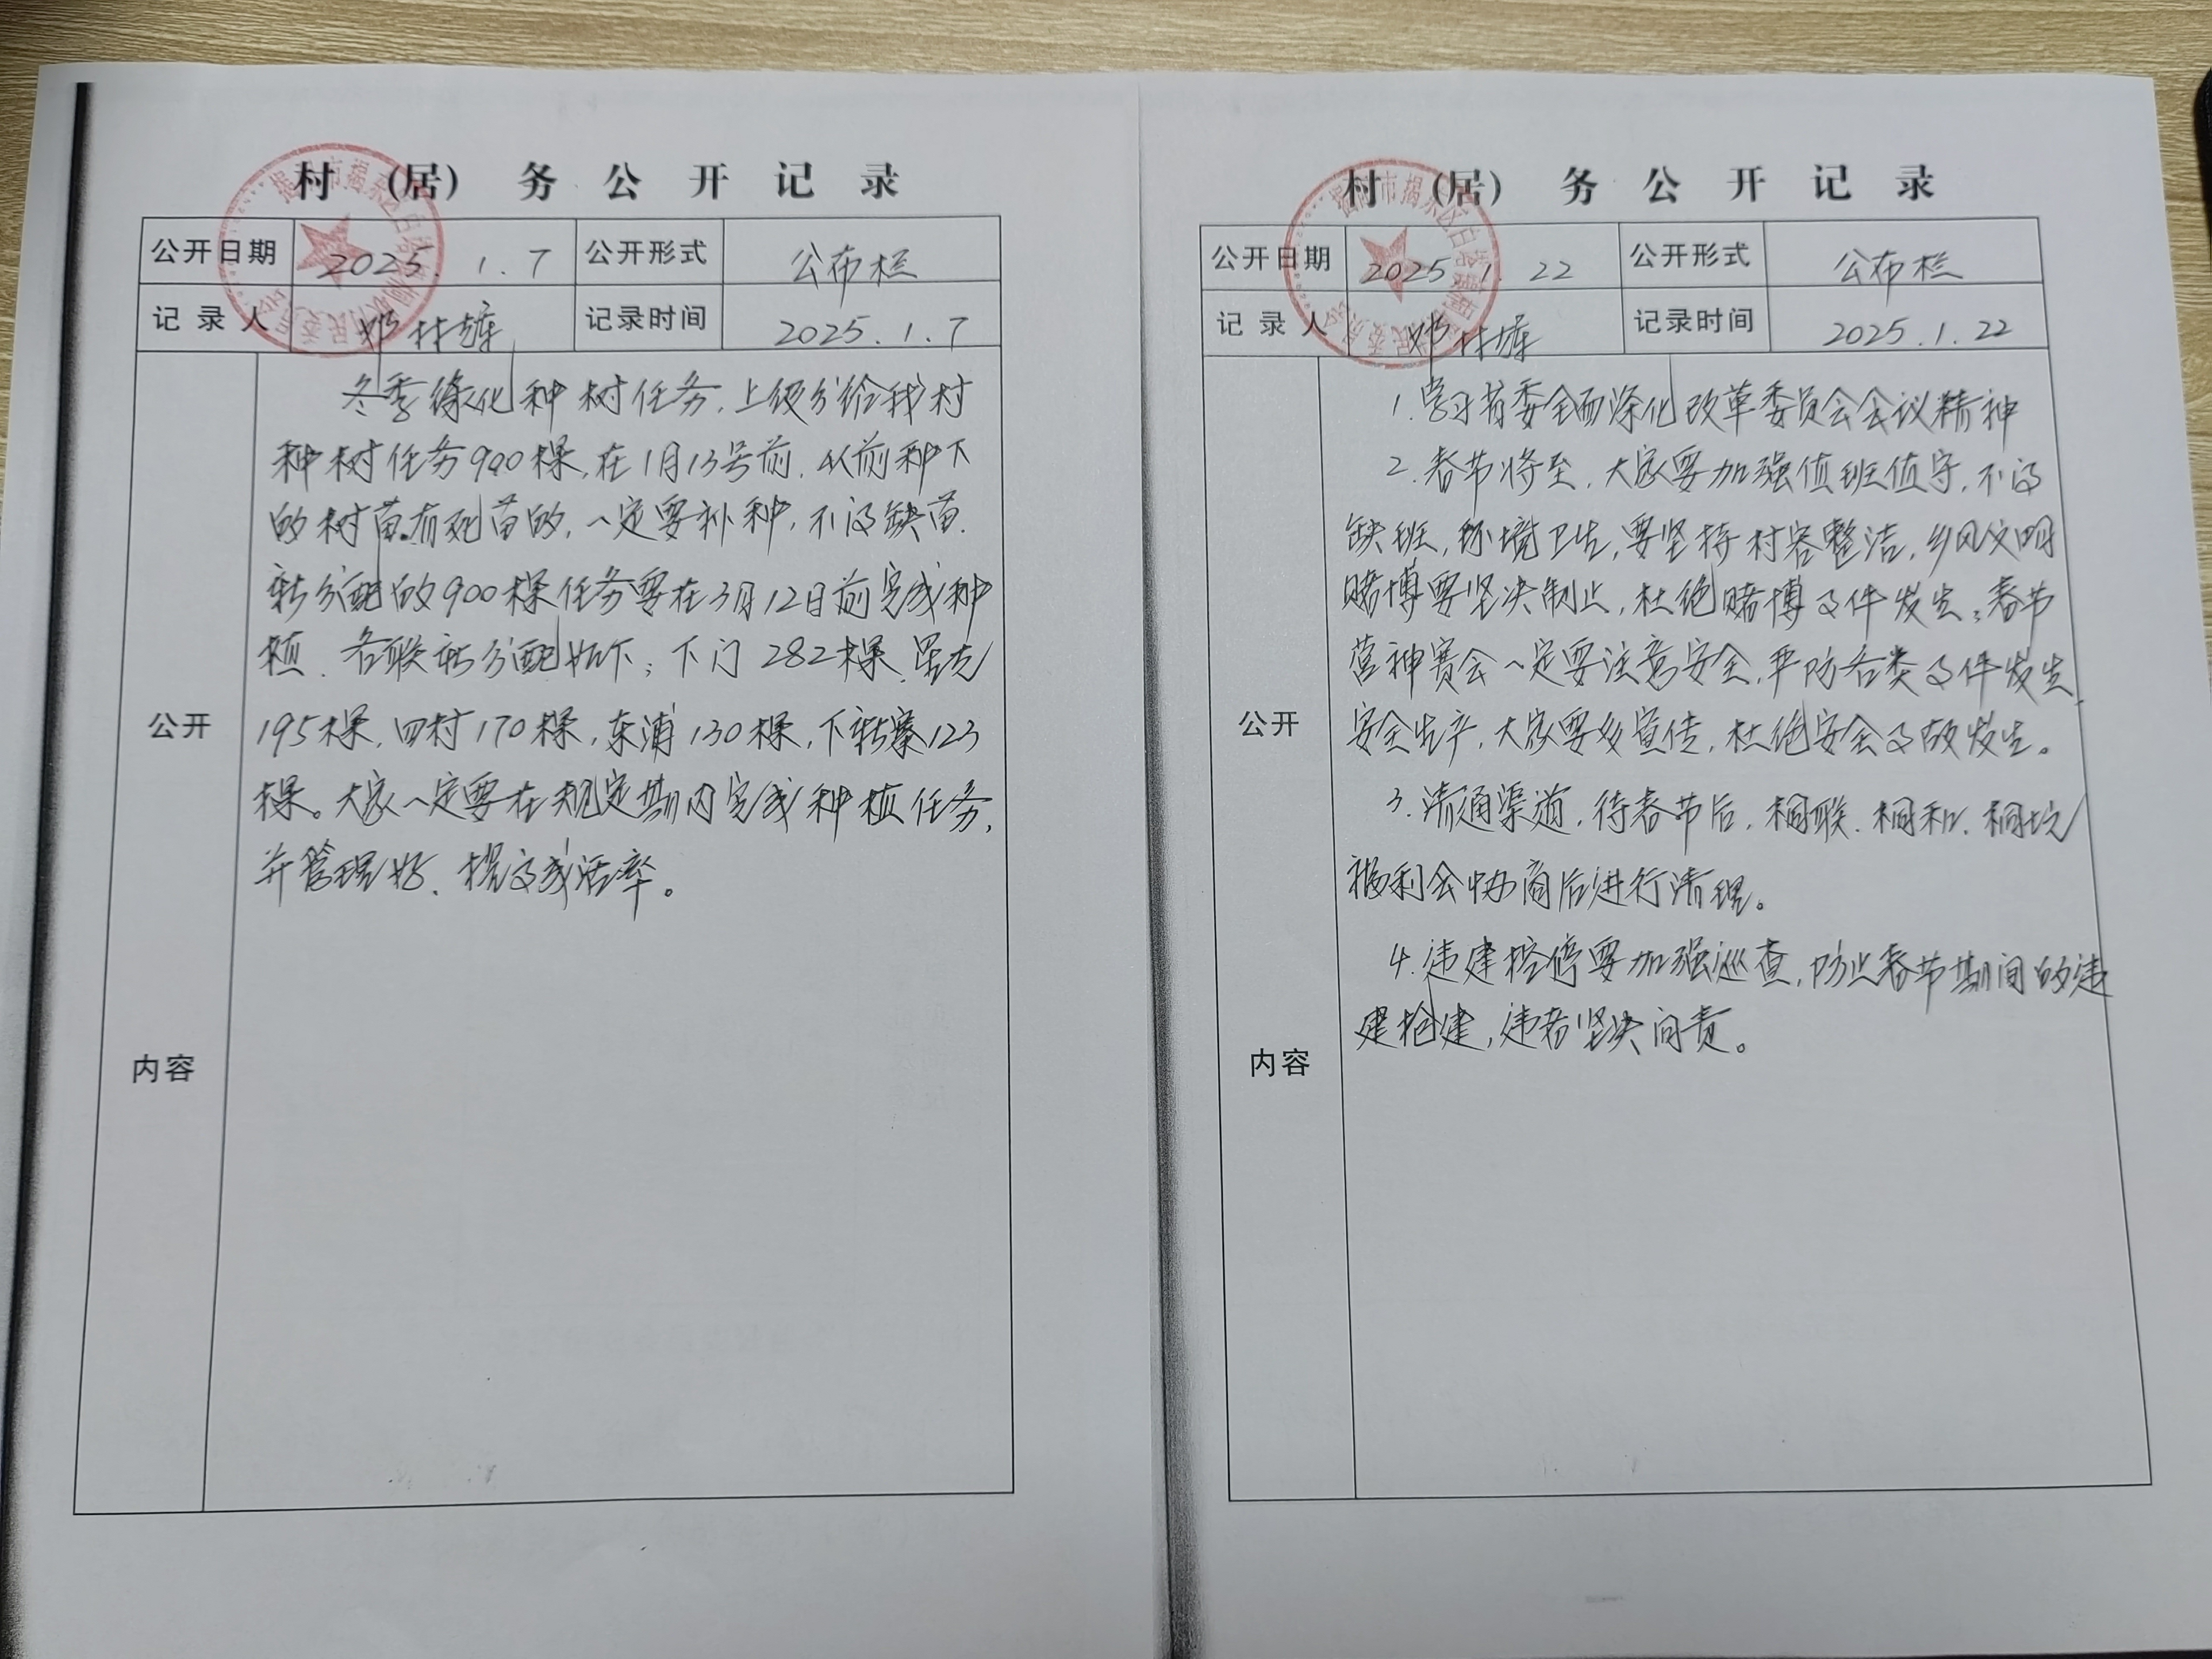 村 (居) 务 公 开 记 录
公开日期 2025.1.7 公开形式 公布栏
记录人 记录时间 2025.1.7
公开
内容
冬季绿化种树任务,上级分给我村
种树任务900棵,在1月13号前,从前种下
的树苗有死苗的,一定要补种,不得缺苗.
新分配的900棵任务要在3月12日前完成种
植.各联新分配如下:下门282棵,
195棵,四村170棵,东浦130棵,下新寨123
棵。大家一定要在规定期内完成种植任务,
并管理好,提高成活率。
村 (居) 务 公 开 记 录
公开日期 2025 1. 22 公开形式 公布栏
记录人 记录时间 2025.1.22
公开
内容
1.学习省委全面深化改革委员会会议精神
2.春节将至,大家要加强值班值守,不得
缺班,环境卫生,要坚持村容整洁,乡风文明
赌博要坚决制止,杜绝赌博事件发生,春节
营神赛会一定要注意安全,严防各类事件发生,
安全生产,大家要多宣传,杜绝安全事故发生。
3.清通渠道,待春节后,桐联.桐和.桐坑
福利会协商后进行清理。
4.违建控停要加强巡查,防止春节期间的违
建抢建,违者坚决问责。